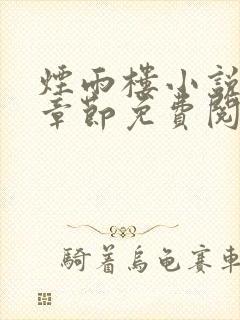 煙雨樓小說
章節免費閱
騎着烏龜賽車